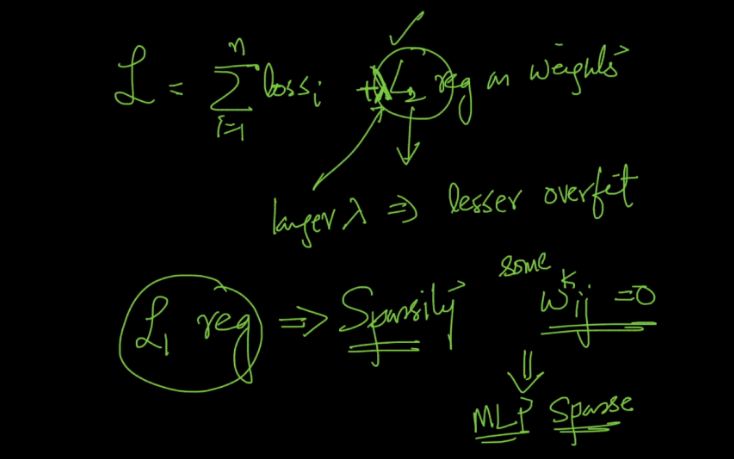 ℒ = n∑i=1 lossi + λ L2 reg on weights
larger λ ⇒ lesser overfit
L1 reg ⇒ Sparsity some wᵏij = 0
⇓
MLP Sparse